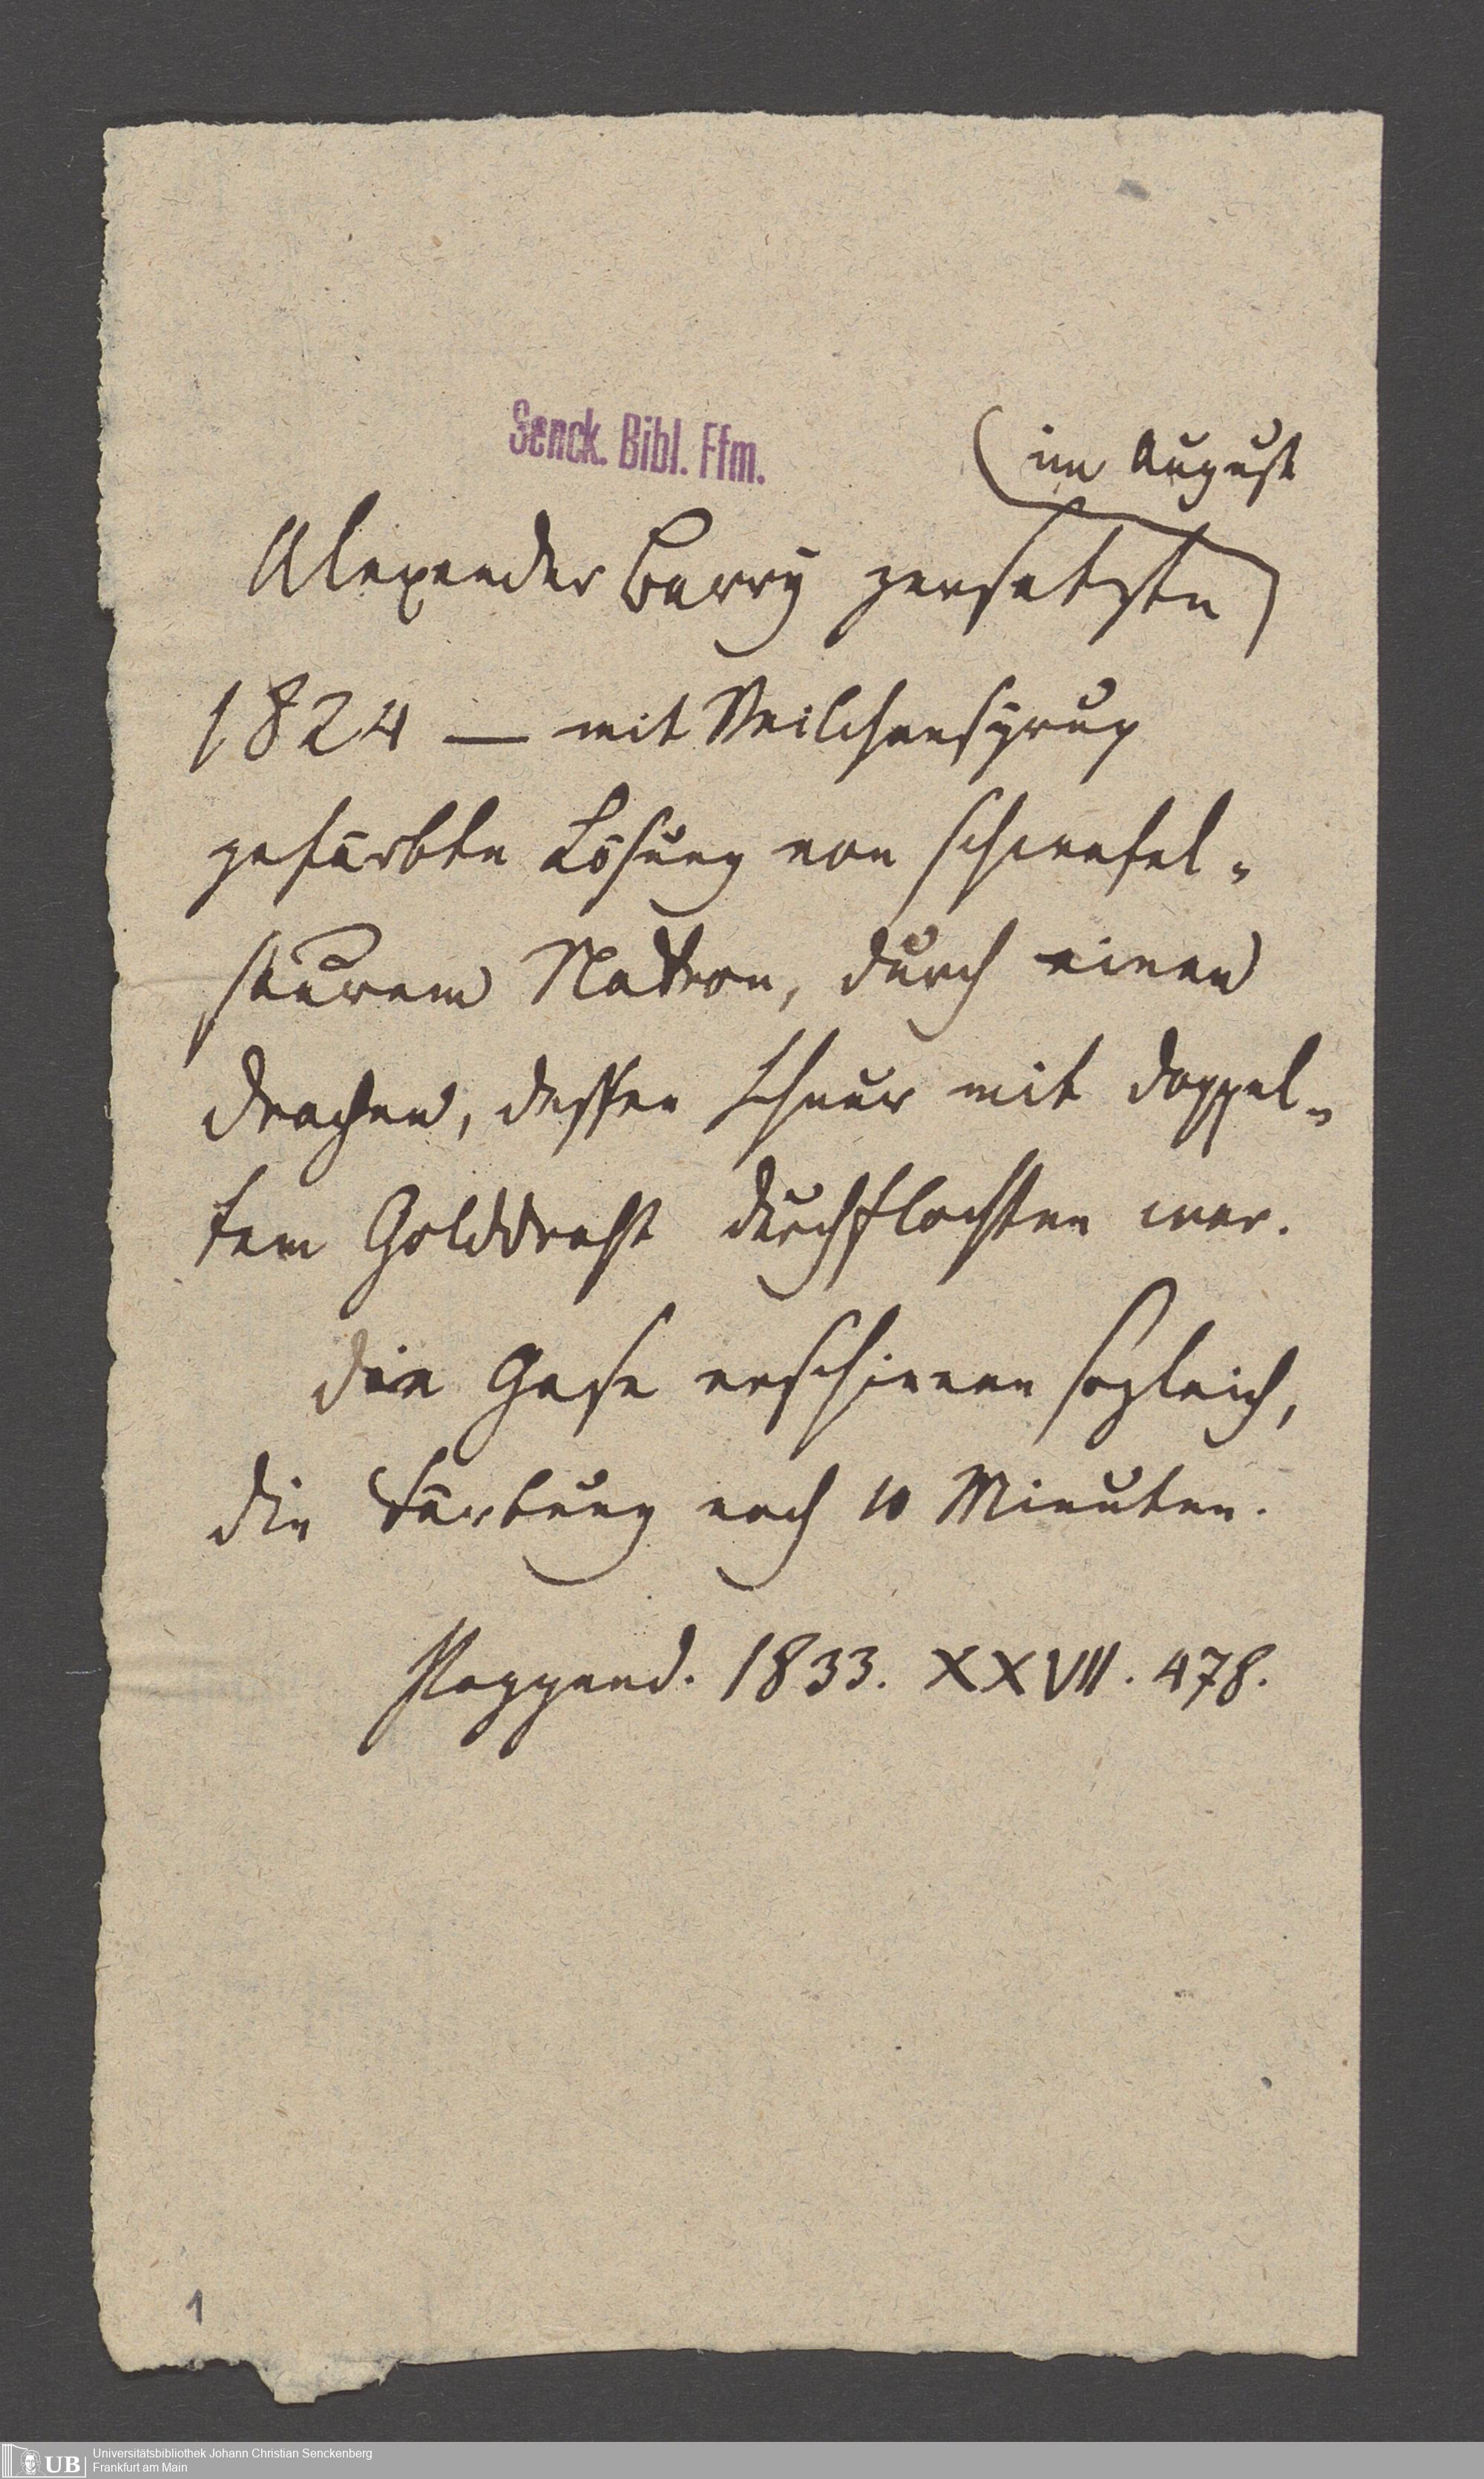 Senck. Bibl. Ffm.
im August
Alexander Barry zersetzte
1824 — mit Veilchensyrup
gefärbte Lösung von schwefel-
saurem Natron, durch einen
Drachen, dessen Schnur mit doppel-
tem Golddraht durchflochten war.
Die Gase erschienen sogleich,
die Färbung nach 10 Minuten.
Poggend. 1833. XXVII. 478.
1
UB
Universitätsbibliothek Johann Christian Senckenberg
Frankfurt am Main